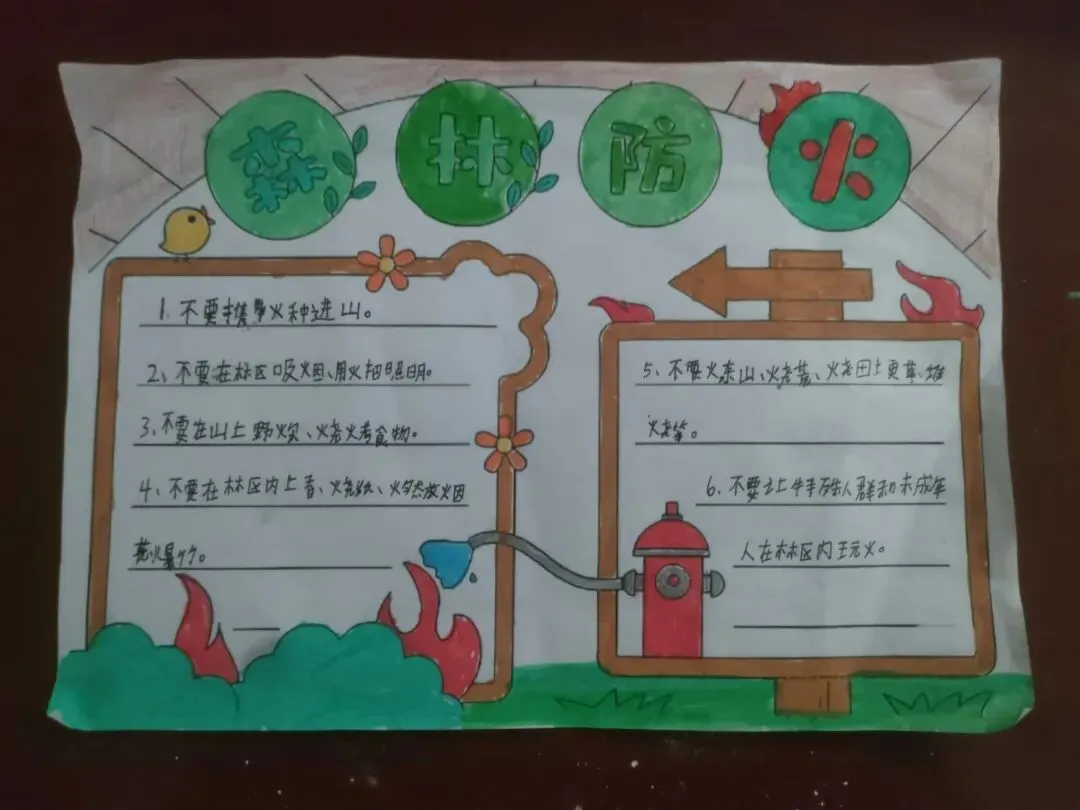 森林防火
1、不要携带火种进山。
2、不要在林区吸烟、用火把照明。
3、不要在山上野炊、烧烤食物。
4、不要在林区内上香、烧纸、燃放烟
花爆竹。
5、不要炼山、烧荒、烧田埂草、堆
烧等。
6、不要让特殊人群和未成年
人在林区内玩火。